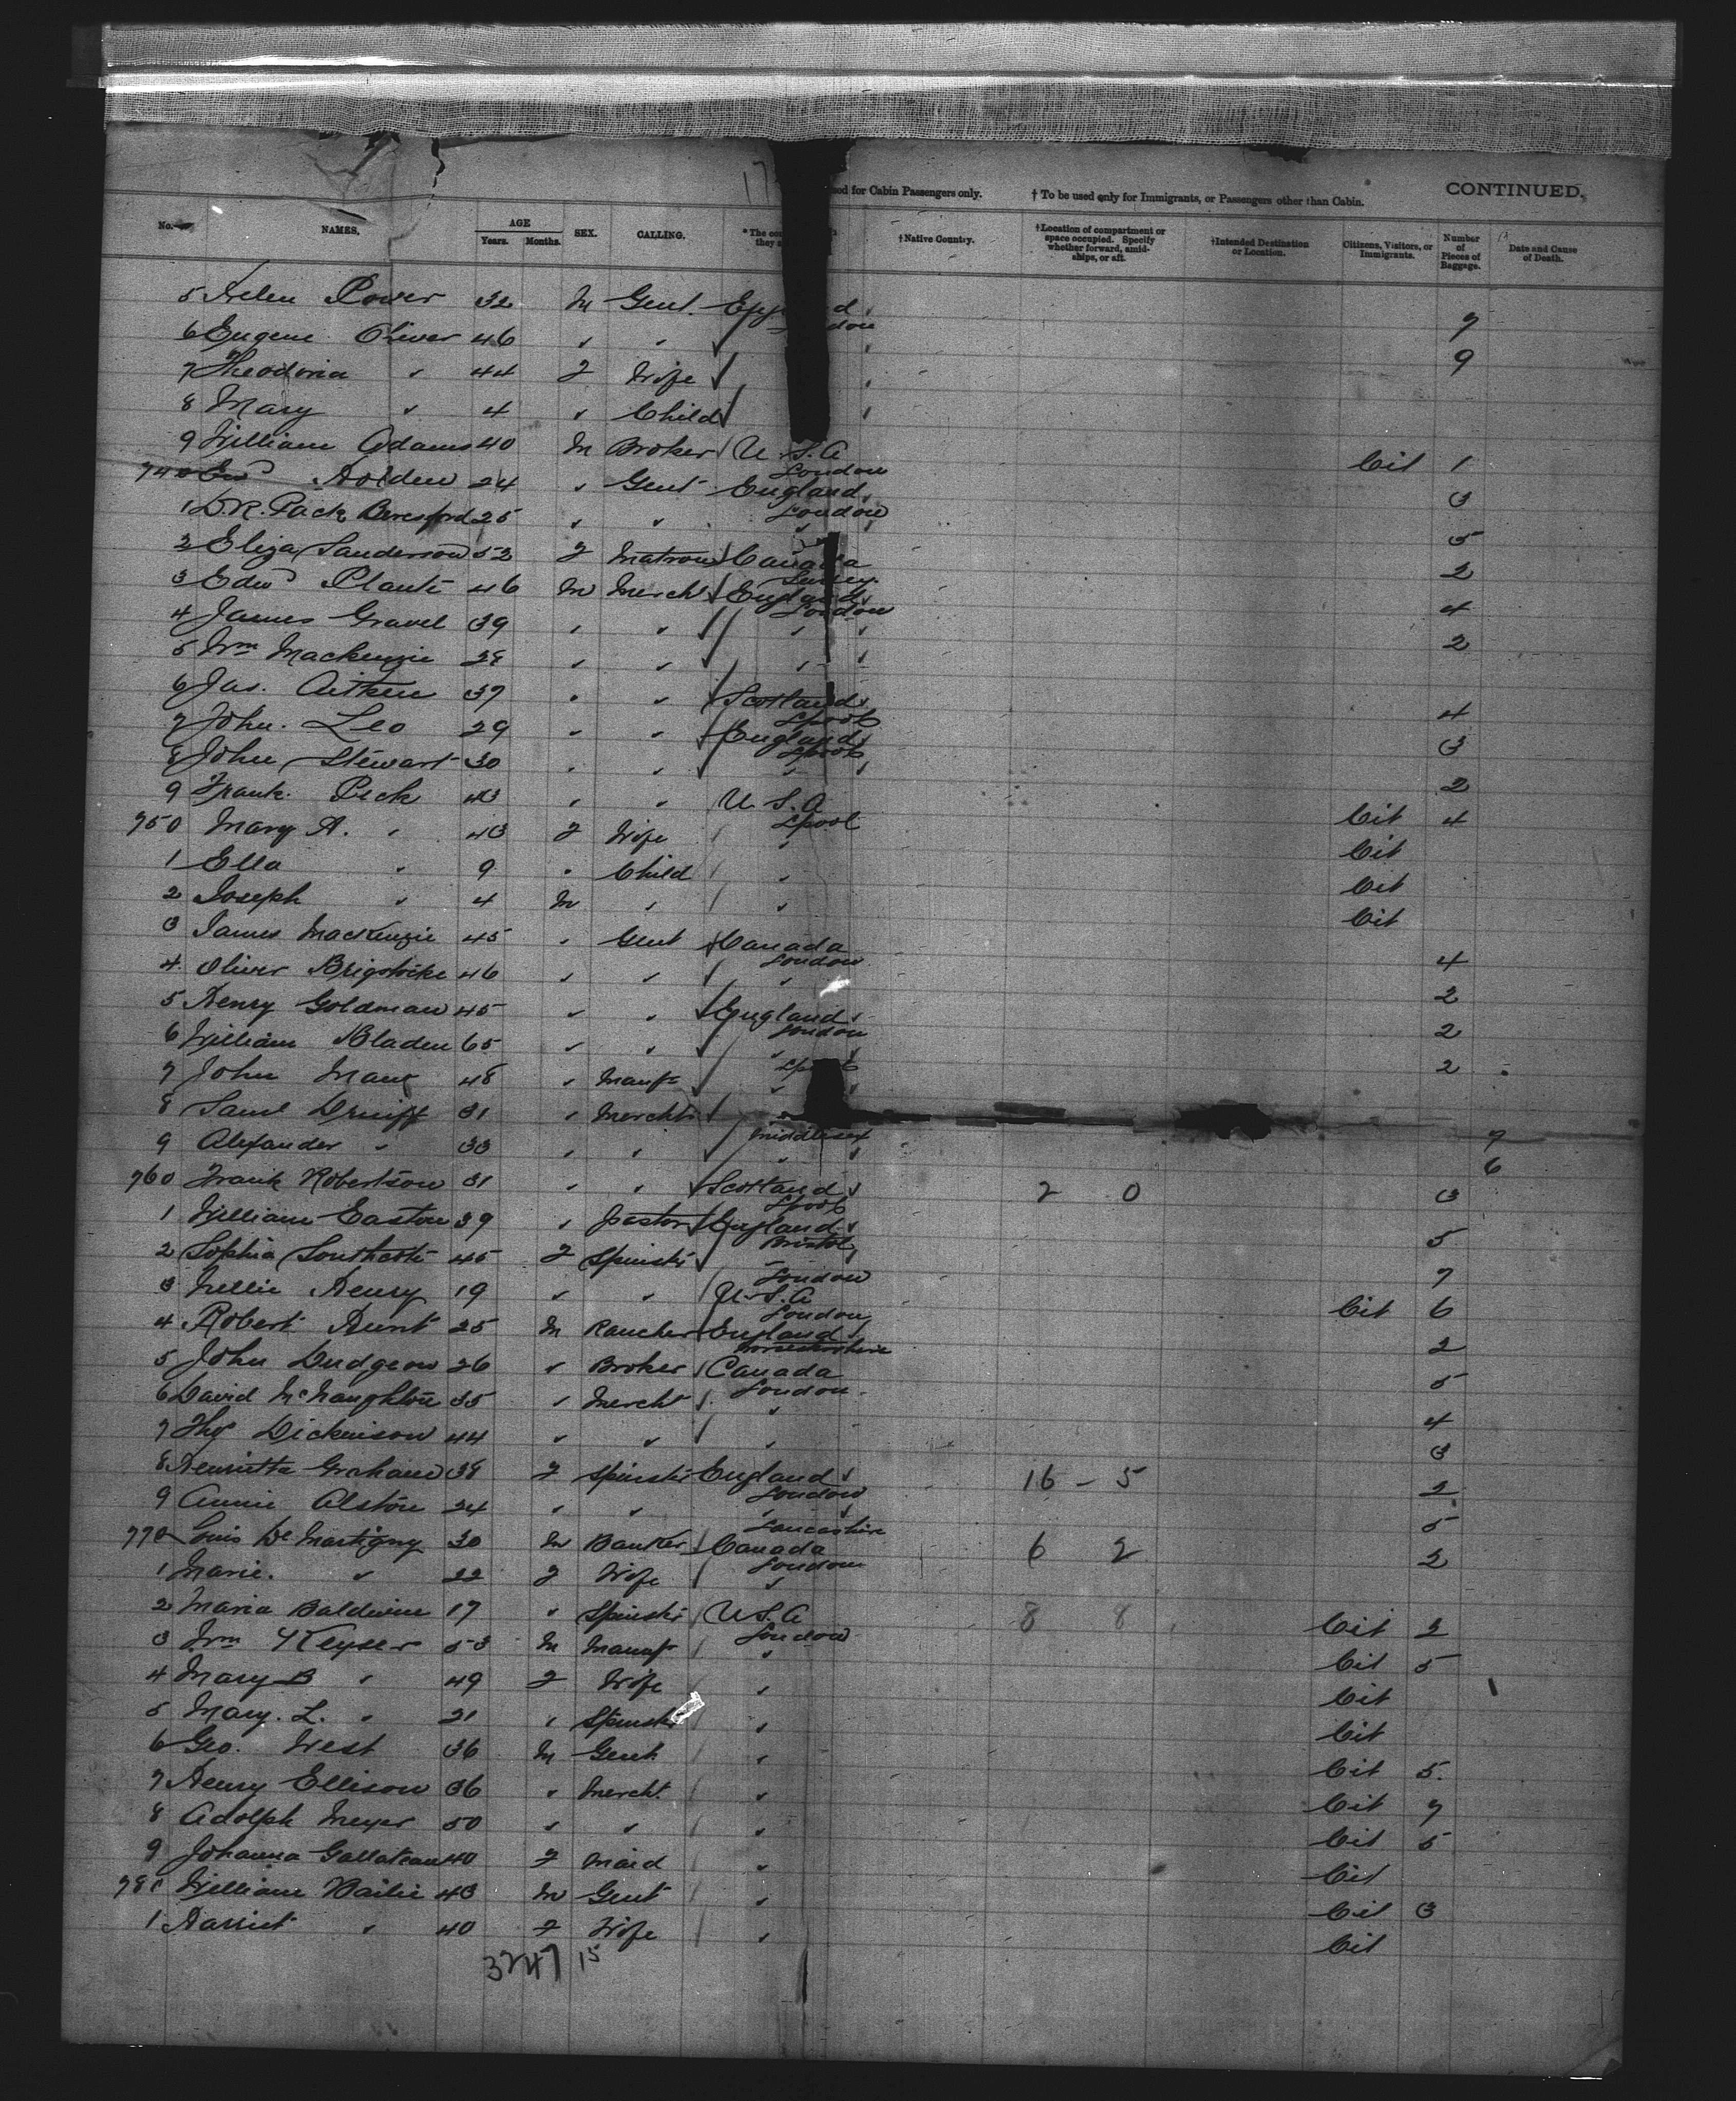 17
sed for Cabin Passengers only. † To be used only for Immigrants, or Passengers other than Cabin. CONTINUED.
No. NAMES. AGE Years. Months. SEX. CALLING. * The cou they †Native Country. †Location of compartment or space occupied. Specify whether forward, amidships, or aft. †Intended Destination or Location. Citizens, Visitors, or Immigrants. Number of Pieces of Baggage. Date and Cause of Death.
5 Helen Power 32 M Gent. 7
6 Eugene Oliver 46 " " 9
7 Theodoria " 44 F Wife
8 Mary " 4 " Child
9 William Adams 40 M Broker U.S.A London Cit 1
740 Edwd Holden 24 " Gent England London 3
1 D.R. Pack Beresford 25 " " " 5
2 Eliza Sanderson 52 F Matron Canada 2
3 Edwd Plante 46 M Mercht England London 4
4 James Gravel 39 " " " 2
5 Wm Mackenzie 28 " " "
6 Jas. Aitken 37 " " Scotland Lpool 4
7 John. Leo 29 " " England Lpool 3
8 John Stewart 30 " " " 2
9 Frank. Peck 43 " " U.S.A Lpool Cit 4
750 Mary A. " 43 F Wife " Cit
1 Ella " 9 " Child " Cit
2 Joseph " 4 M " " Cit
3 James MacKenzie 45 " Gent Canada London 4
4 Oliver Brigstocke 46 " " " 2
5 Henry Goldman 45 " " England London 2
6 William Bladen 65 " " " Lpool 2
7 John 48 " Manfr "
8 Saml Druiff 31 " Mercht " Middlesex 7
9 Alexander " 33 " " " 6
760 Frank Robertson 31 " " Scotland Lpool 2 0 3
1 William Easton 39 " Pastor England Bristol 5
2 Sophia Southcote 45 F Spinstr " London 7
3 Nellie Henry 19 " " U.S.A London Cit 6
4 Robert Hunt 25 M Rancher England 2
5 John Dudgeon 26 " Broker Canada London 5
6 David McNaughton 35 " Mercht " 4
7 Thos Dickinson 44 " " " 3
8 Henrietta Graham 38 F Spinstr England London 16 - 5 2
9 Annie Alston 24 " " " Lancashire 5
770 Louis De Martigny 30 M Banker Canada London 6 2 2
1 Marie. " 22 F Wife "
2 Maria Baldwin 17 " Spinstr U.S.A London 8 8 Cit 2
3 Wm Keyser 53 M Manufr " Cit 5
4 Mary B " 49 F Wife " Cit
5 Mary. L. " 21 " Spinstr " Cit
6 Geo. West 36 M Gent " Cit 5.
7 Henry Ellison 36 " Mercht. " Cit 7
8 Adolph Meyer 50 " " " Cit 5
9 Johanna 40 F Maid " Cit
780 William Bailie 43 M Gent " Cit 3
1 Harriet " 40 F Wife " Cit
3247 15